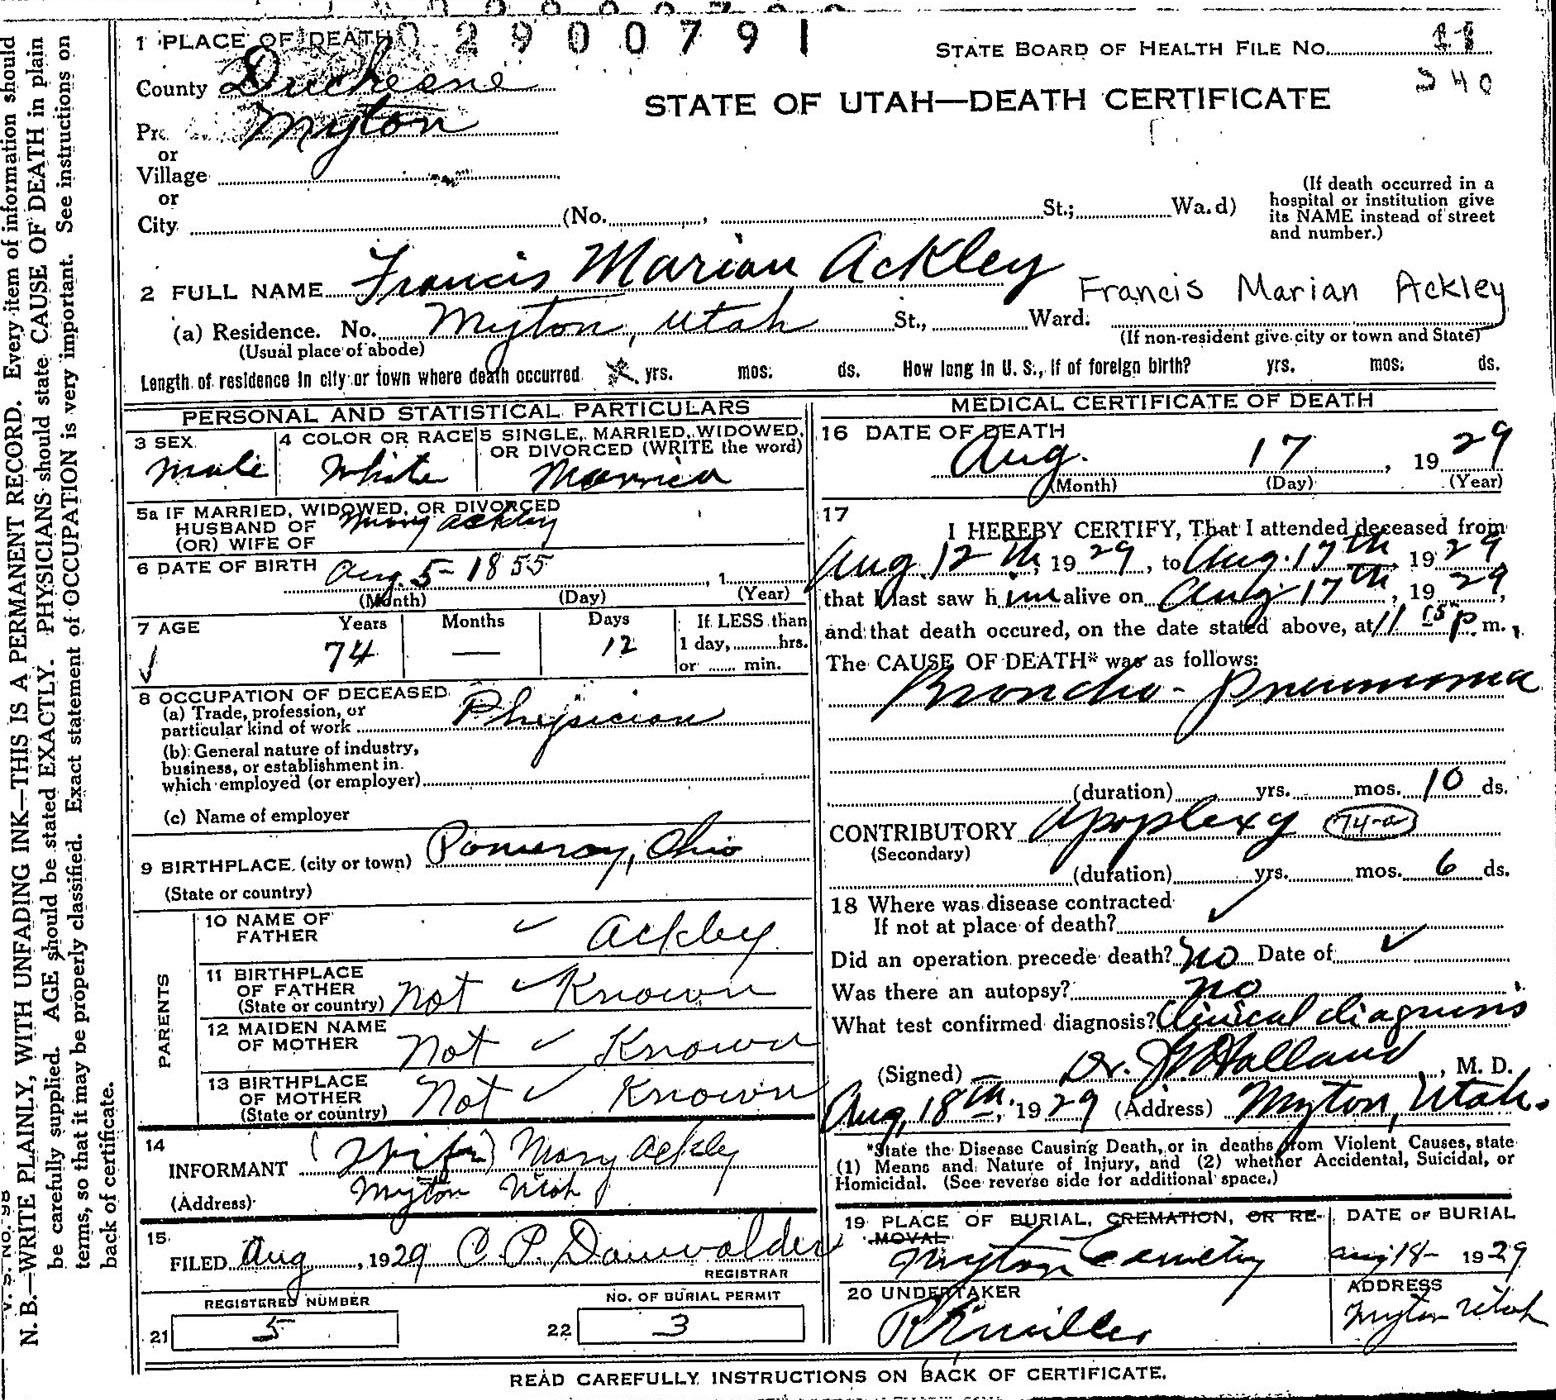 1 PLACE OF DEATH 02900791
STATE BOARD OF HEALTH FILE No. 11
340
County Duchesne
STATE OF UTAH—DEATH CERTIFICATE
Myton
or
Village
or
City (No. , St.; Wa.d)
(If death occurred in a
hospital or institution give
its NAME instead of street
and number.)
2 FULL NAME Francis Marian Ackley
Francis Marian Ackley
(a) Residence. No. Myton, Utah St., Ward.
(Usual place of abode)
(If non-resident give city or town and State)
Length of residence in city or town where death occurred yrs. mos. ds. How long in U. S., if of foreign birth? yrs. mos. ds.
PERSONAL AND STATISTICAL PARTICULARS
3 SEX
male
4 COLOR OR RACE
White
5 SINGLE, MARRIED, WIDOWED,
OR DIVORCED (WRITE the word)
Married
5a IF MARRIED, WIDOWED, OR DIVORCED
HUSBAND OF Mary Ackley
(OR) WIFE OF
6 DATE OF BIRTH Aug. 5 - 1855 , 1
(Month) (Day) (Year)
7 AGE
Years Months Days If LESS than
74 — 12 1 day, hrs.
or min.
8 OCCUPATION OF DECEASED
(a) Trade, profession, or
particular kind of work Physician
(b) General nature of industry,
business, or establishment in
which employed (or employer)
(c) Name of employer
9 BIRTHPLACE (city or town) Pomeroy, Ohio
(State or country)
PARENTS
10 NAME OF
FATHER ✓ Ackley
11 BIRTHPLACE
OF FATHER
(State or country) Not ✓ Known
12 MAIDEN NAME
OF MOTHER Not ✓ Known
13 BIRTHPLACE
OF MOTHER
(State or country) Not ✓ Known
14
INFORMANT (Wife) Mary Ackley
(Address) Myton Utah
15
FILED Aug , 1929 C. P. Dauwalder
REGISTRAR
REGISTERED NUMBER
21 5
NO. OF BURIAL PERMIT
22 3
MEDICAL CERTIFICATE OF DEATH
16 DATE OF DEATH
Aug. 17 , 19 29
(Month) (Day) (Year)
17
I HEREBY CERTIFY, That I attended deceased from
Aug 12th, 19 29, to Aug. 17th, 19 29
that I last saw him alive on Aug 17th, 19 29,
and that death occured, on the date stated above, at 11 15 P. m.,
The CAUSE OF DEATH* was as follows:
Broncho-pneumonia
(duration) yrs. mos. 10 ds.
CONTRIBUTORY Apoplexy 74-a
(Secondary)
(duration) yrs. mos. 6 ds.
18 Where was disease contracted
If not at place of death? ✓
Did an operation precede death? no Date of ✓
Was there an autopsy? no
What test confirmed diagnosis? Clinical diagnosis
(Signed) Dr. Holland, M. D.
Aug, 18th, 1929 (Address) Myton, Utah.
*State the Disease Causing Death, or in deaths from Violent Causes, state
(1) Means and Nature of Injury, and (2) whether Accidental, Suicidal, or
Homicidal. (See reverse side for additional space.)
19 PLACE OF BURIAL, CREMATION, OR RE-
MOVAL
Myton Cemetery
DATE OF BURIAL
Aug 18- 1929
20 UNDERTAKER
Miller
ADDRESS
Myton Utah
READ CAREFULLY INSTRUCTIONS ON BACK OF CERTIFICATE.
V. S. NO. 98
N. B.—WRITE PLAINLY, WITH UNFADING INK—THIS IS A PERMANENT RECORD. Every item of information should
be carefully supplied. AGE should be stated EXACTLY. PHYSICIANS should state CAUSE OF DEATH in plain
terms, so that it may be properly classified. Exact statement of OCCUPATION is very important. See instructions on
back of certificate.